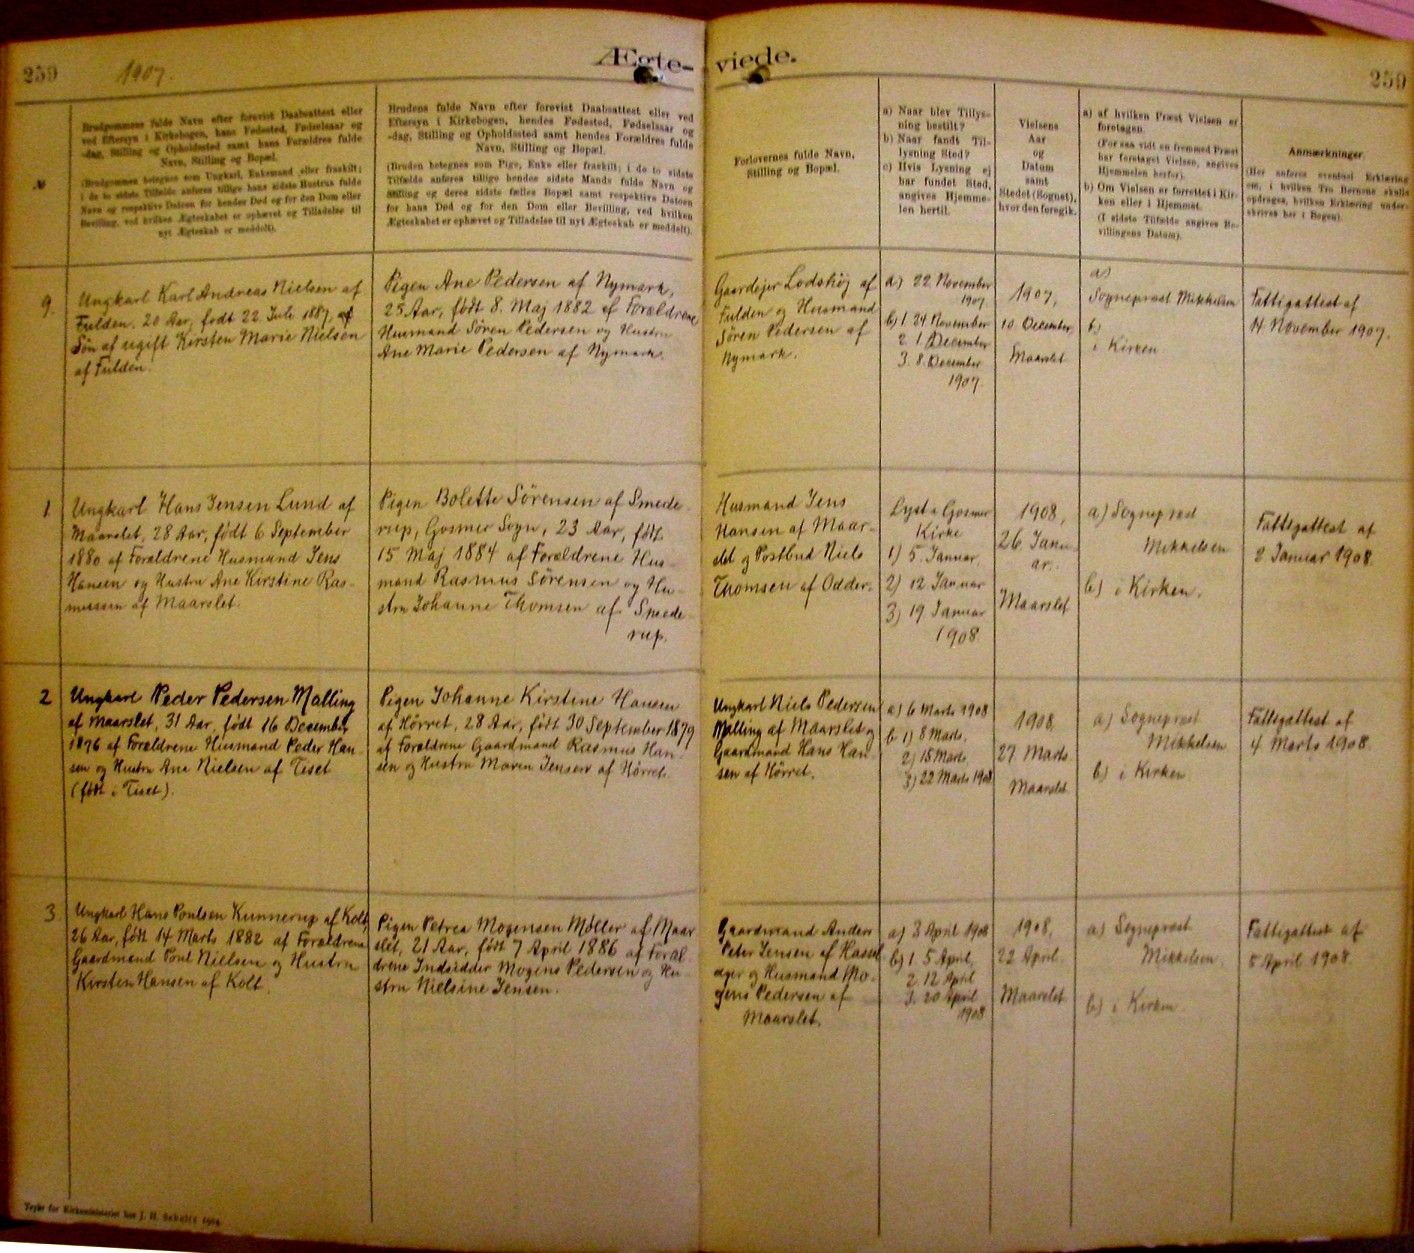 259
1907.
Ægte-
viede.
259
№
Brudgommens fulde Navn efter forevist Daabsattest eller
ved Eftersyn i Kirkebogen, hans Fødested, Fødselsaar og
-dag, Stilling og Opholdssted samt hans Forældres fulde
Navn, Stilling og Bopæl.
(Brudgommen betegnes som Ungkarl, Enkemand eller fraskilt;
i de to sidste Tilfælde anføres tillige hans sidste Hustrus fulde
Navn og respektive Datoen for hendes Død og for den Dom eller
Bevilling, ved hvilken Ægteskabet er ophævet og Tilladelse til
nyt Ægteskab er meddelt).
Brudens fulde Navn efter forevist Daabsattest eller ved
Eftersyn i Kirkebogen, hendes Fødested, Fødselsaar og
-dag, Stilling og Opholdssted samt hendes Forældres fulde
Navn, Stilling og Bopæl.
(Bruden betegnes som Pige, Enke eller fraskilt; i de to sidste
Tilfælde anføres tillige hendes sidste Mands fulde Navn og
Stilling og deres sidste fælles Bopæl samt respektive Datoen
for hans Død og for den Dom eller Bevilling, ved hvilken
Ægteskabet er ophævet og Tilladelse til nyt Ægteskab er meddelt).
Forlovernes fulde Navn,
Stilling og Bopæl.
a) Naar blev Tillys-
ning bestilt?
b) Naar fandt Til-
lysning Sted?
c) Hvis Lysning ej
har fundet Sted,
angives Hjemme-
len hertil.
Vielsens
Aar
og
Datum
samt
Stedet (Sognet),
hvor den foregik.
a) af hvilken Præst Vielsen er
foretagen.
(For saa vidt en fremmed Præst
har foretaget Vielsen, angives
Hjemmelen herfor).
b) Om Vielsen er forrettet i Kir-
ken eller i Hjemmet.
(I sidste Tilfælde angives Be-
villingens Datum).
Anmærkninger.
(Her anføres eventuel Erklæring
om, i hvilken Tro Børnene skulle
opdrages, hvilken Erklæring under-
skrives her i Bogen).
9.
Ungkarl Karl Andreas Nielsen af
Fulden, 20 Aar, født 22 Juli 1887, af
Søn af ugift Kirsten Marie Nielsen
af Fulden.
Pigen Ane Pedersen af Nymark,
25 Aar, født 8. Maj 1882 af Forældrene
Husmand Søren Pedersen og Hustru
Ane Marie Pedersen af Nymark.
Gaardejer Lodshøj af
Fulden og Husmand
Søren Pedersen af
Nymark.
a) 22 November
1907.
b) 1. 24. November
2. 1. December
3. 8. December
1907.
1907,
10. December,
Maarslet
a)
Sognepræst Mikkelsen
b)
i Kirken
Fattigattest af
14 November 1907.
1
Ungkarl Hans Jensen Lund af
Maarslet, 28 Aar, født 6 September
1880 af Forældrene Husmand Jens
Hansen og Hustru Ane Kirstine Ras-
mussen af Maarslet.
Pigen Bolette Sörensen af Smede-
rup, Gosmer Sogn, 23 Aar, født
15 Maj 1884 af Forældrene Hus-
mand Rasmus Sörensen og Hu-
stru Johanne Thomsen af Smede-
rup.
Husmand Jens
Hansen af Maar-
slet og Postbud Niels
Thomsen af Odder.
Lyst i Gosmer
Kirke
1) 5. Januar.
2) 12 Januar
3) 19 Januar
1908
1908,
26. Janu-
ar.
Maarslet
a) Sognepræst
Mikkelsen
b) i Kirken.
Fattigattest af
2 Januar 1908.
2
Ungkarl Peder Pedersen Malling
af Maarslet, 31 Aar, født 16 December
1876 af Forældrene Husmand Peder Han-
sen og Hustru Ane Nielsen af Tiset
(født i Tiset).
Pigen Johanne Kirstine Hansen
af Hörret, 28 Aar, født 30 September 1879
af Forældrene Gaardmand Rasmus Han-
sen og Hustru Maren Jensen af Hörret.
Ungkarl Niels Pedersen
Malling af Maarslet og
Gaardmand Hans Han-
sen af Hörret.
a) 6 Marts 1908
b 1) 8 Marts.
2) 15 Marts.
3) 22 Marts 1908
1908,
27. Marts
Maarslet
a) Sognepræst
Mikkelsen
b) i Kirken
Fattigattest af
4 Marts 1908.
3
Ungkarl Hans Poulsen Kunnerup af Kolt,
26 Aar, født 14 Marts 1882 af Forældrene
Gaardmand Poul Nielsen og Hustru
Kirsten Hansen af Kolt.
Pigen Petrea Mogensen Møller af Maar
slet, 21 Aar, født 7 April 1886 af Foræl-
drene Indsidder Mogens Pedersen og Hu-
stru Nielsine Jensen.
Gaardmand Anders
Peter Jensen af Hassel
ager og Husmand Mo-
gens Pedersen af
Maarslet.
a) 3 April 1908
b) 1 5 April,
2. 12 April
3. 20 April
1908
1908,
22 April
Maarslet
a) Sognepræst
Mikkelsen.
b) i Kirken
Fattigattest af
5 April 1908.
Trykt for Kirkeministeriet hos J. H. Schultz 1904